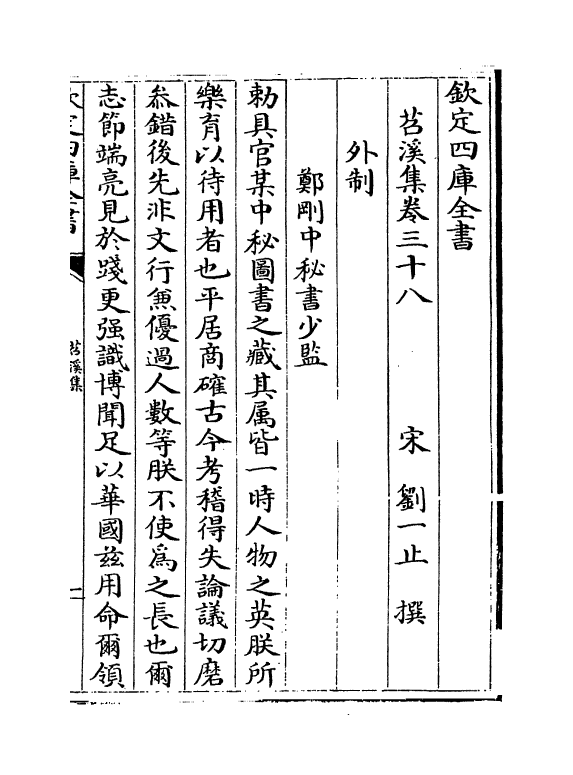 欽定四庫全書
苕溪集卷三十八　宋　劉一止　撰
外制
鄭剛中秘書少監
勅具官某中秘圖書之藏其属皆一時人物之英朕所
樂育以待用者也平居商確古今考稽得失論議切磨
叅錯後先非文行兼優過人數等朕不使為之長也爾
志節端亮見於踐更强識博聞足以華國兹用命爾領
欽定四庫全書
苕溪集
一